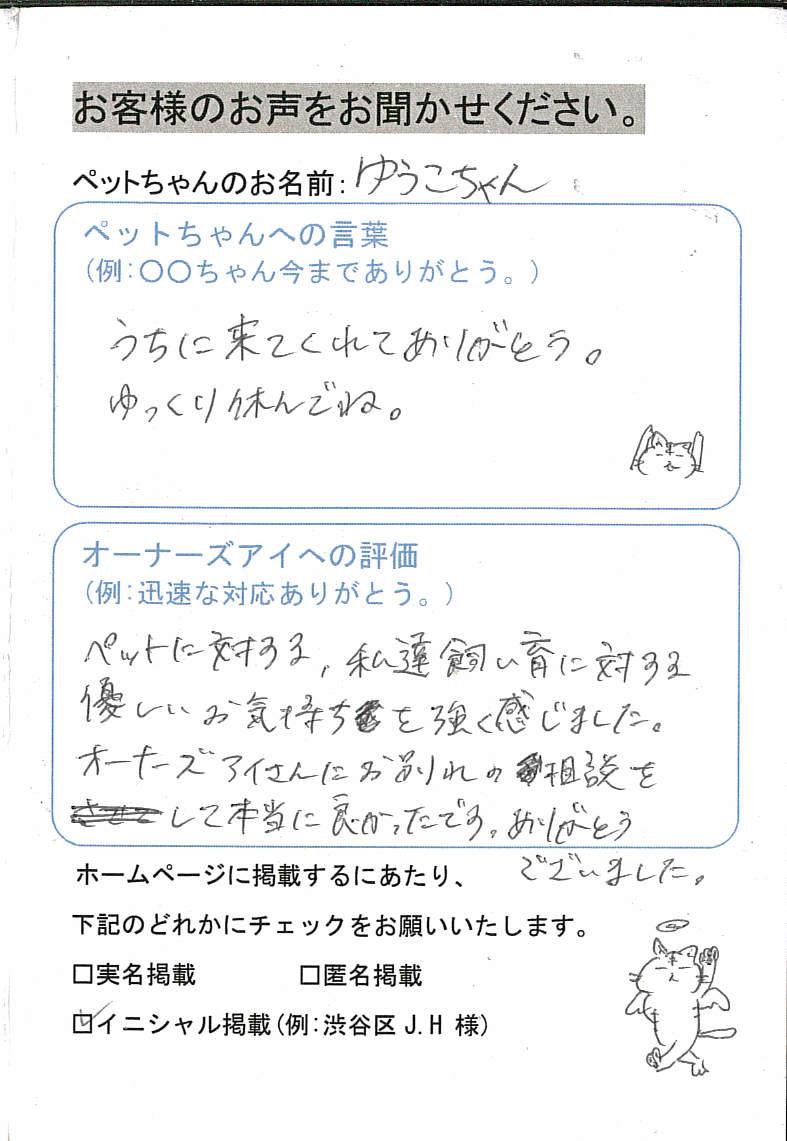 お客様のお声をお聞かせください。
ペットちゃんのお名前：ゆうこちゃん
ペットちゃんへの言葉
（例：〇〇ちゃん今までありがとう。）
うちに来てくれてありがとう。
ゆっくり休んでね。
オーナーズアイへの評価
（例：迅速な対応ありがとう。）
ペットに対する，私達飼い育に対する
優しいお気持ちを強く感じました。
オーナーズアイさんにお別れの相談を
して本当に良かったです。ありがとう
ございました。
ホームページに掲載するにあたり、
下記のどれかにチェックをお願いいたします。
□実名掲載 □匿名掲載
☑イニシャル掲載（例：渋谷区 J.H 様）